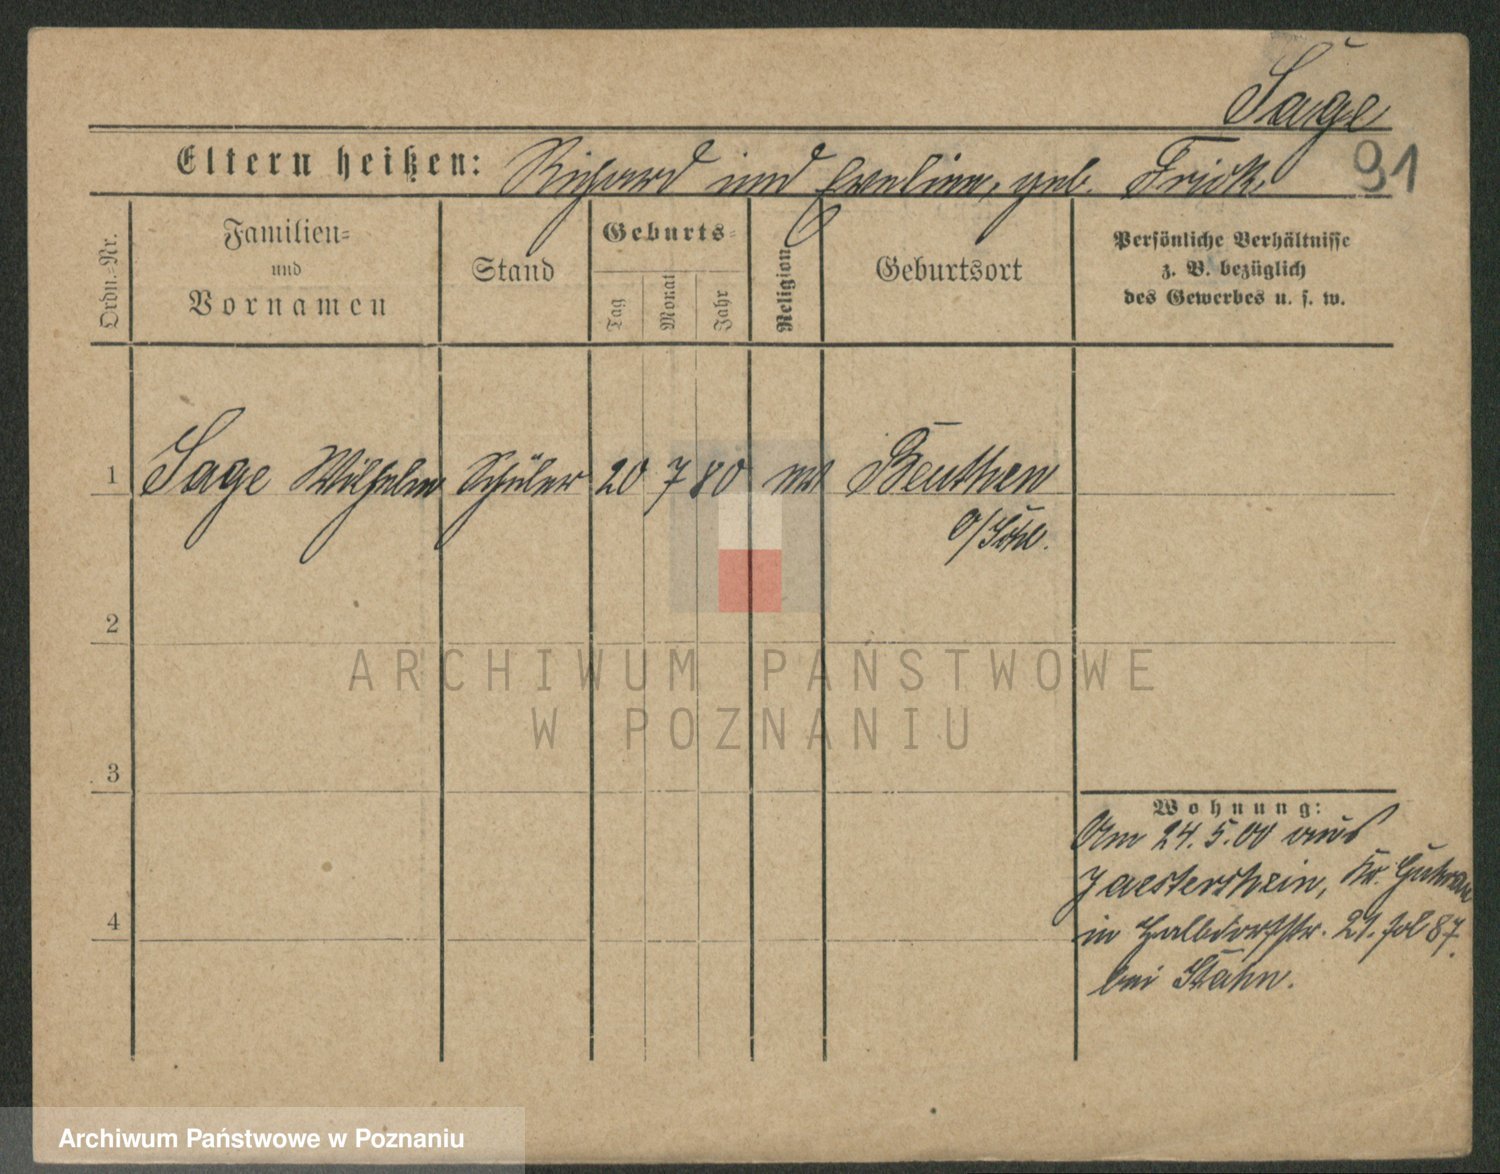 Sage
91
Eltern heißen: Richard und Eveline, geb. Frick
Ordn.-Nr.
Familien-
und
Vornamen
Stand
Geburts-
Tag
Monat
Jahr
Religion
Geburtsort
Persönliche Verhältnisse
z. B. bezüglich
des Gewerbes u. s. w.
1 Sage Wilhelm Schüler 20 7 80 Beuthen
O/Schl.
2
3
4
Wohnung:
Am 24.5.00 aus
Kr. Guhrau
in Halbdorfstr. 21.
bei
ARCHIWUM PAŃSTWOWE
W POZNANIU
Archiwum Państwowe w Poznaniu